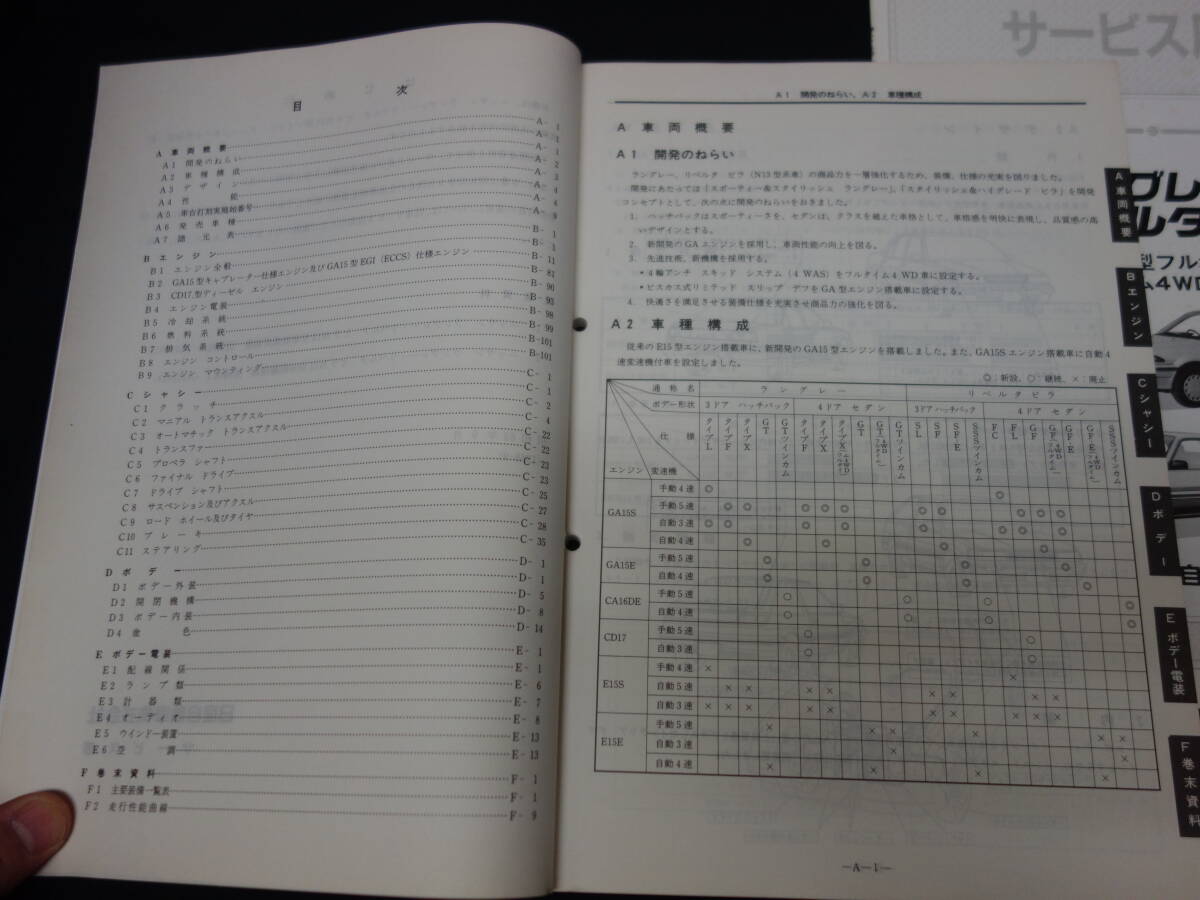 目　次
A 車両概要 A- 1
A1 開発のねらい A- 1
A2 車種構成 A- 1
A3 デザイン A- 2
A4 性能 A- 3
A5 車台打刻実施始番号 A- 4
A6 発売車種 A- 4
A7 諸元表 A- 9
B エンジン B- 1
B1 エンジン全般 B- 1
B2 GA15型キャブレター仕様エンジン及びGA15型EGI（ECCS）仕様エンジン B- 11
B3 CD17型ディーゼル エンジン B- 81
B4 エンジン電装 B- 90
B5 冷却系統 B- 93
B6 燃料系統 B- 98
B7 排気系統 B- 99
B8 エンジン コントロール B-101
B9 エンジン マウンティング B-101
C シャシー C- 1
C1 クラッチ C- 1
C2 マニアル トランスアクスル C- 2
C3 オートマチック トランスアクスル C- 4
C4 トランスファー C- 22
C5 プロペラ シャフト C- 22
C6 ファイナル ドライブ C- 23
C7 ドライブ シャフト C- 23
C8 サスペンション及びアクスル C- 25
C9 ロード ホイール及びタイヤ C- 27
C10 ブレーキ C- 28
C11 ステアリング C- 35
D ボデー D- 1
D1 ボデー外装 D- 1
D2 開閉機構 D- 5
D3 ボデー内装 D- 8
D4 塗色 D- 14
E ボデー電装 E- 1
E1 配線関係 E- 1
E2 ランプ類 E- 6
E3 計器類 E- 7
E4 オーディオ E- 8
E5 ウインドー装置 E- 13
E6 空調 E- 13
F 巻末資料 F- 1
F1 主要装備一覧表 F- 1
F2 走行性能曲線 F- 9
A1 開発のねらい、A2 車種構成
A 車両概要
A1 開発のねらい
ラングレー、リベルタ ビラ（N13型系車）の商品力を一層強化するため、装備、仕様の充実を図りました。
開発にあたっては「スポーティー&スタイリッシュ ラングレー」、「スタイリッシュ&ハイグレード ビラ」を開発
コンセプトとして、次の次に開発のねらいをおきました。
1. ハッチバックはスポーティーさを、セダンは、クラスを越えた車格として、車格感を明快に表現し、品質感の高
いデザインとする。
2. 新開発のGAエンジンを採用し、車両性能の向上を図る。
3. 先進技術、新機構を採用する。
*4輪アンチ スキッド システム（4WAS）をフルタイム4WD車に設定する。
*ビスカス式リミテッド スリップ デフをGA型エンジン搭載車に設定する。
4. 快適さを満足させる装備仕様を充実させ商品力の強化を図る。
A2 車種構成
従来のE15型エンジン搭載車に、新開発のGA15型エンジンを搭載しました。また、GA15Sエンジン搭載車に自動4
速変速機付車を設定しました。
◎：新設、○：継続、×：廃止
通称名 ラングレー リベルタビラ
ボデー形状 3ドア ハッチバック 4ドア セダン 3ドアハッチバック 4ドア セダン
仕様 タイプL タイプF タイプX GT GTツインカム タイプF タイプX タイプX（フルタイム4WD） GT GT（フルタイム4WD） GTツインカム SL SF SF・E SSSツインカム FC FL GF GF（フルタイム4WD） GF・E GF・E（フルタイム4WD） SSSツインカム
エンジン 変速機
GA15S 手動4速 ◎ ◎
手動5速 ◎ ◎ ◎ ◎ ◎ ◎ ◎ ◎ ◎ ◎
自動3速 ◎ ◎ ◎ ◎ ◎ ◎ ◎ ◎
自動4速 ◎ ◎ ◎ ◎
GA15E 手動5速 ◎ ◎ ◎ ◎
自動4速 ◎ ◎ ◎ ◎
CA16DE 手動5速 ○ ○ ○ ○
自動4速 ○ ○ ○ ○
CD17 手動5速 ○ ○
自動3速 ○ ○
E15S 手動4速 × ×
自動5速 × × × × × × × ×
自動3速 × × × × × × × × × ×
E15E 手動5速 × × × ×
自動3速 × ×
自動4速 × × × ×
—A-1—
A 車両概要
B エンジン
C シャシー
D ボデー
E ボデー電装
F 巻末資料
サービス
ブレ
ルタ
型フル
ム4WD
自